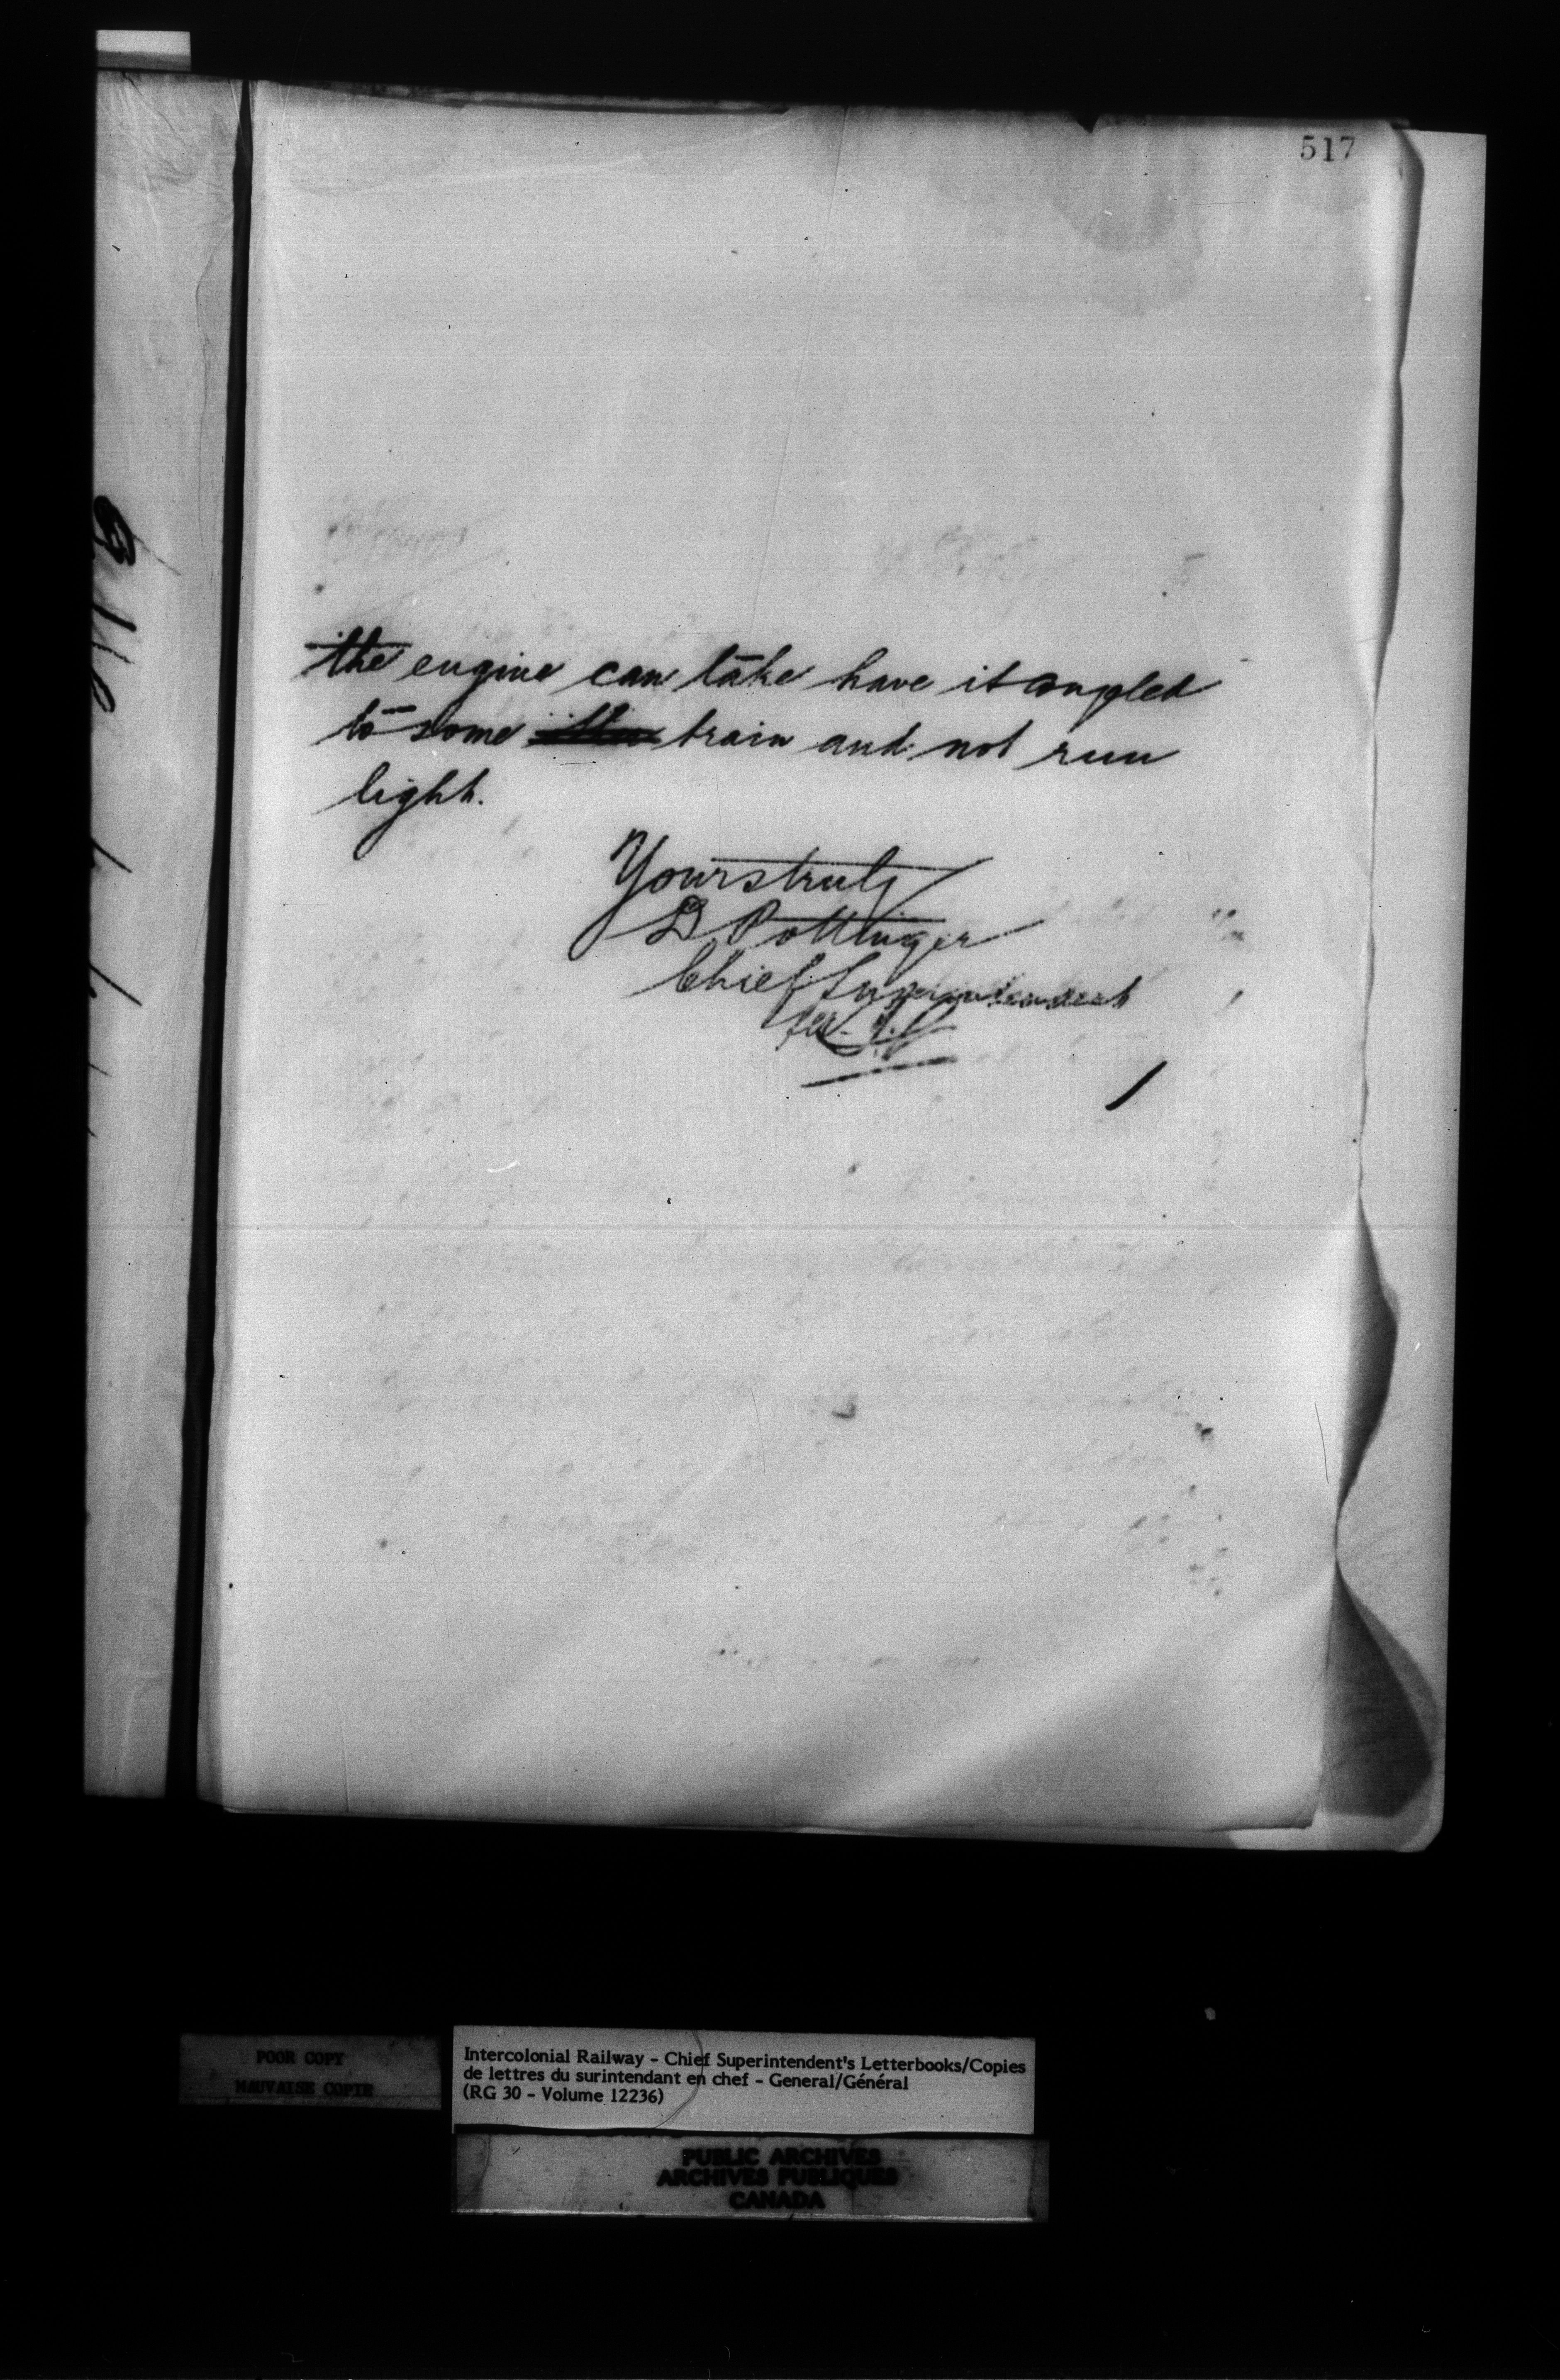 517
the engine can take have it coupled
to some train and not run
light.
Yours truly
D Pottinger
Chief Superintendent
POOR COPY
MAUVAISE COPIE
Intercolonial Railway - Chief Superintendent's Letterbooks/Copies
de lettres du surintendant en chef - General/Général
(RG 30 - Volume 12236)
PUBLIC ARCHIVES
ARCHIVES PUBLIQUES
CANADA